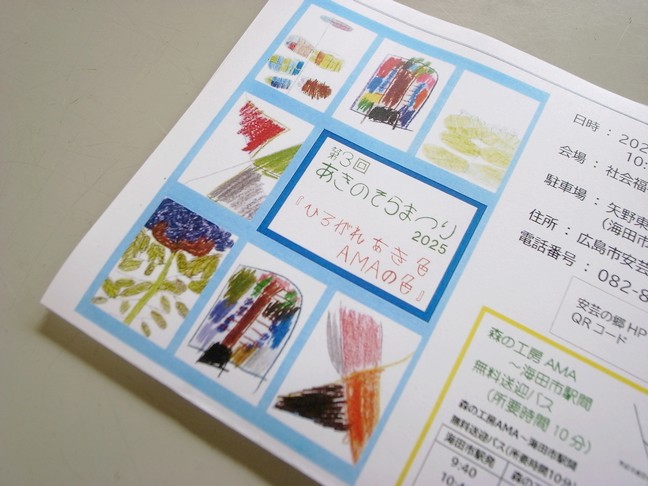 第3回
あきのそらまつり
2025
『ひろがれ あき色
AMAの色』
日時：202
10:
会場：社会福
駐車場：矢野東
(海田市
住所：広島市安芸
電話番号：082-8
安芸の郷HP
QRコード
森の工房AMA
～海田市駅間
無料送迎バス
(所要時間10分)
森の工房AMA～海田市駅間
無料送迎バス(所要時間10分)
海田市駅発
森の工
9:40
10: